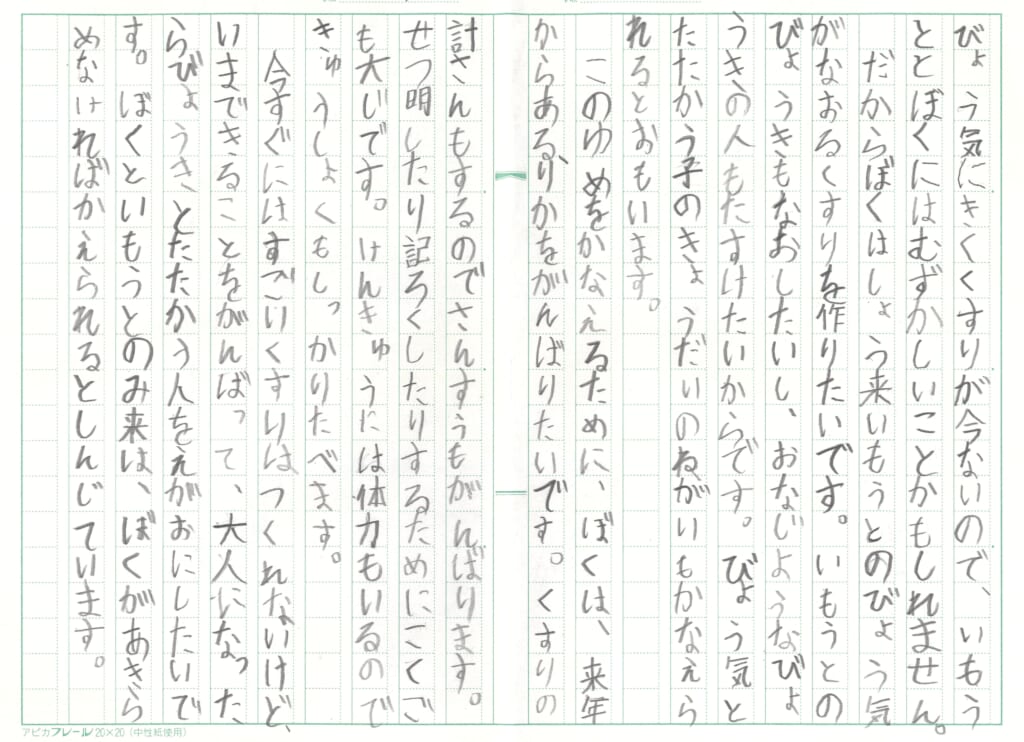 びょう気にきくくすりが今ないので、いもう
ととぼくにはむずかしいことかもしれません。
だからぼくはしょう来いもうとのびょう気
がなおるくすりを作りたいです。いもうとの
びょうきもなおしたいし、おなじようなびょ
うきの人もたすけたいからです。びょう気と
たたかう子のきょうだいのねがいもかなえら
れるとおもいます。
このゆめをかなえるためには、ぼくは、来年
からある、りかをがんばりたいです。くすりの
計さんもするのでさんすうもがんばります。
せつ明したり記ろくしたりするためにこくご
も大じです。けんきゅうには体力もいるので
きゅうしょくもしっかりたべます。
今すぐにはすごいくすりはつくれないけど、
いまできることをがんばって、大人になった
らびょうきとたたかう人をえがおにしたいで
す。ぼくといもうとのみ来は、ぼくがあきら
めなければかえられるとしんじています。
アピカフレール20×20(中性紙使用)